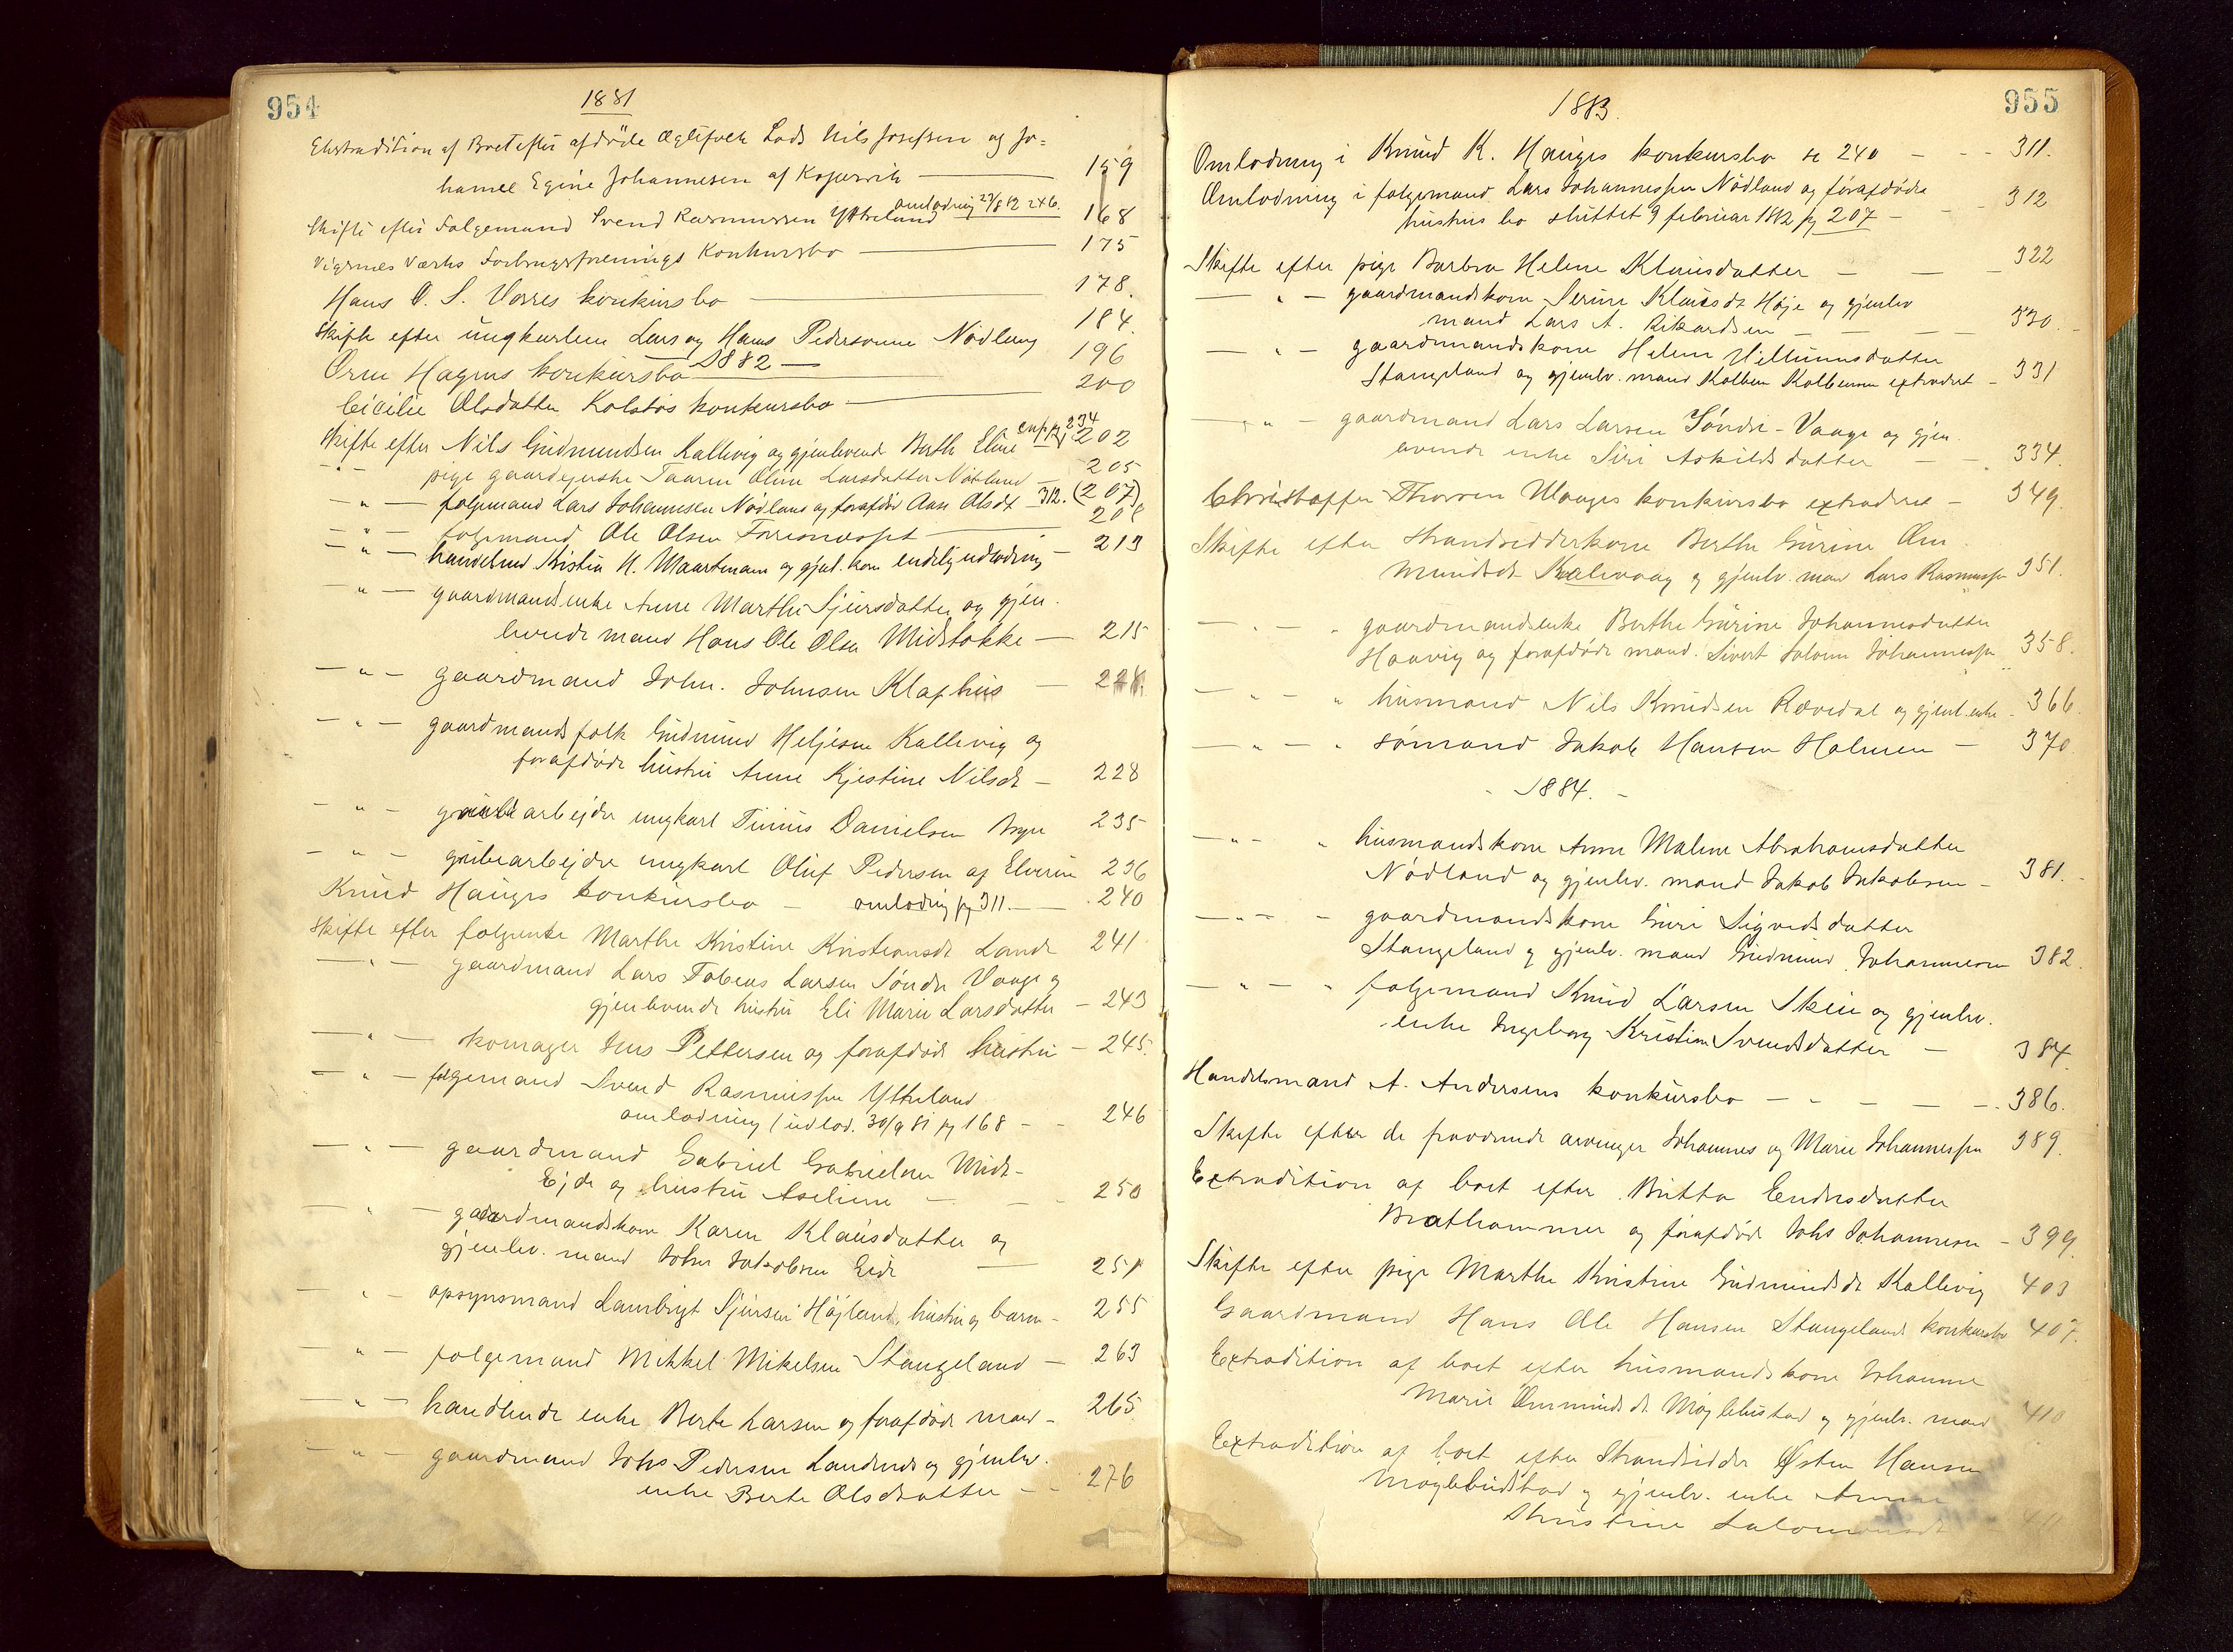 954
1881
Ekstradition af Boet efter afdöde Ægtefolk Lods Nils Josefsen og Jo=
hanne Egine Johannesen af Kopervik 159
omlodning 23/8 82 246.
Skifte efter Folgemand Svend Rasmussen Ytreland 168
Vigsnes Værks Forbrugsforenings Konkursbo 175
Hans O. S. Vorres konkursbo 178.
Skifte efter ungkarlene Lars og Hans Pedersønne Nødland 184.
1882
Ørm Hagens konkursbo 196
Cicilie Olsdatter Kolstøs konkursbo 200
cnf pg 234
Skifte efter Nils Gudmundsen Kallevig og gjenlevende Berth Eline 202
-"- pige gaardejerske Taaren Oline Larsdatter Nødland 205
-"- folgemand Lars Johannesen Nødland og forafdøde Aase Olsdt 312. (207)
-"- folgemand Ole Olsen Forresnesset 208
-"- handelsmd Kristia N. Waartmann og gjnl. kone endelig udlodning 213
" - gaardmandsenke Anne Marthe Sjursdatter og gjen-
levende mand Hans Ole Olsen Midstokke 215
-"- gaardmand John. Johnsen Klaphus 224.
-"- gaardmandsfolk Gudmund Heljesen Kallevig og
forafdøde hustru Anne Kjestine Nilsdt 228
-"- grubearbejder ungkarl Tinius Danielsen 235
-"- grubearbejdre ungkarl Oluf Pedersen af Elverum 236
Knud Hauges konkursbo - omlodning pg 311. 240
Skifte efter folgeenke Marthe Kristine Kristiansdt Lande 241
-"- gaardmand Lars Tobeas Larsen Søndre Vaage og
gjenlevende hustru Eli Marie Larsdatter - 243
-"- skomager Jens Pettersen og forafdøde hustru - 245.
-"- folgemand Svend Rasmussen Ytreland
omlodning (udlod. 30/9 81 pg 168 - - 246
-"- gaardmand Gabriel Gabrielsen Midt-
Ejde og hustru Aseline - - 250
-"- gaardmandskone Karen Klausdatter og
gjenlev. mand John Jakobsen Eide 251
-"- opsynsmand Lambrigt Sjursen Højland, hustru og barn - 255
-"- folgemand Mikkel Mikelsen Stangeland - 263
-"- handlende enke Berte Larsen og forafdøde mand - 265
-"- gaardmand Johs Pedersen Landenes og gjenlev.
enke Berte Olsdatter - - 276
955
1883.
Omlodning i Knud K. Hauges konkursbo se 240 - - - 311.
Omlodning i folgemand Lars Johannessen Nödland og forafdøde
hustrus bo sluttet 9 februar 1882 pg 207 - - - 312
Skifte efter pige Barbra Helene Klausdatter - - - 322
- " - gaardmandskone Serine Klausdt Høje og gjenlev
mand Lars A. Rikardsen - - - - 330.
- " - gaardmandskone Helene Villumsdatter
Stangeland og gjenlev. mand Kolben Kolbensen extraderet - 331
- " - gaardmand Lars Larsen Søndre-Vaage og gjen-
levende enke Siri Askildsdatter - - 334.
Christoffer Thorsen Waages konkursbo extraderet - 349.
Skifte efter Strandsidderkone Berthe Gurine Om-
mundsdt Kalevaag og gjenlev. man Lars Rasmussen 351.
- " - " gaardmandsenke Berthe Gurine Johannesdatter
Haavig og forafdøde mand. Sivert Salom Johannessen 358.
- " - " husmand Nils Knudsen Rævedal og gjenl. enke - 366.
- " - " sømand Jakob Hansen Holmen - 370.
- 1884. -
- " - " husmandskone Anne Malene Abrahamsdatter
Nødland og gjenlev. mand Jakob Jakobsen - 381.
- " - - gaardmandskone Guri Sigvedsdatter
Stangeland og gjenlev. mand Gudmund Johannesen 382.
- " - " folgemand Knud Larsen Skeie og gjenlev.
enke Ingeborg Kristine Svendsdatter - 384.
Handelsmand A. Andersens konkursbo - - - - - 386.
Skifte efter de fraværende arvinger Johannes og Marie Johannessen 389.
Extradition af boet efter Britta Endresdatter
Brathammer og forafdøde Johs Johannesen - 399.
Skifte efter pige Marthe Kristine Gudmundsdt Kallevig 403
Gaardmand Hans Ole Hansen Stangelands konkursbo 407.
Extradition af boet efter husmandskone Johanne
Marie Ommundsdt Møglebustad og gjenlv. mand 410
Extradition af boet efter Strandsidder Østen Hansen
Møglebudstad og gjenlv. enke Anne
Kristine Salomonsdt 411